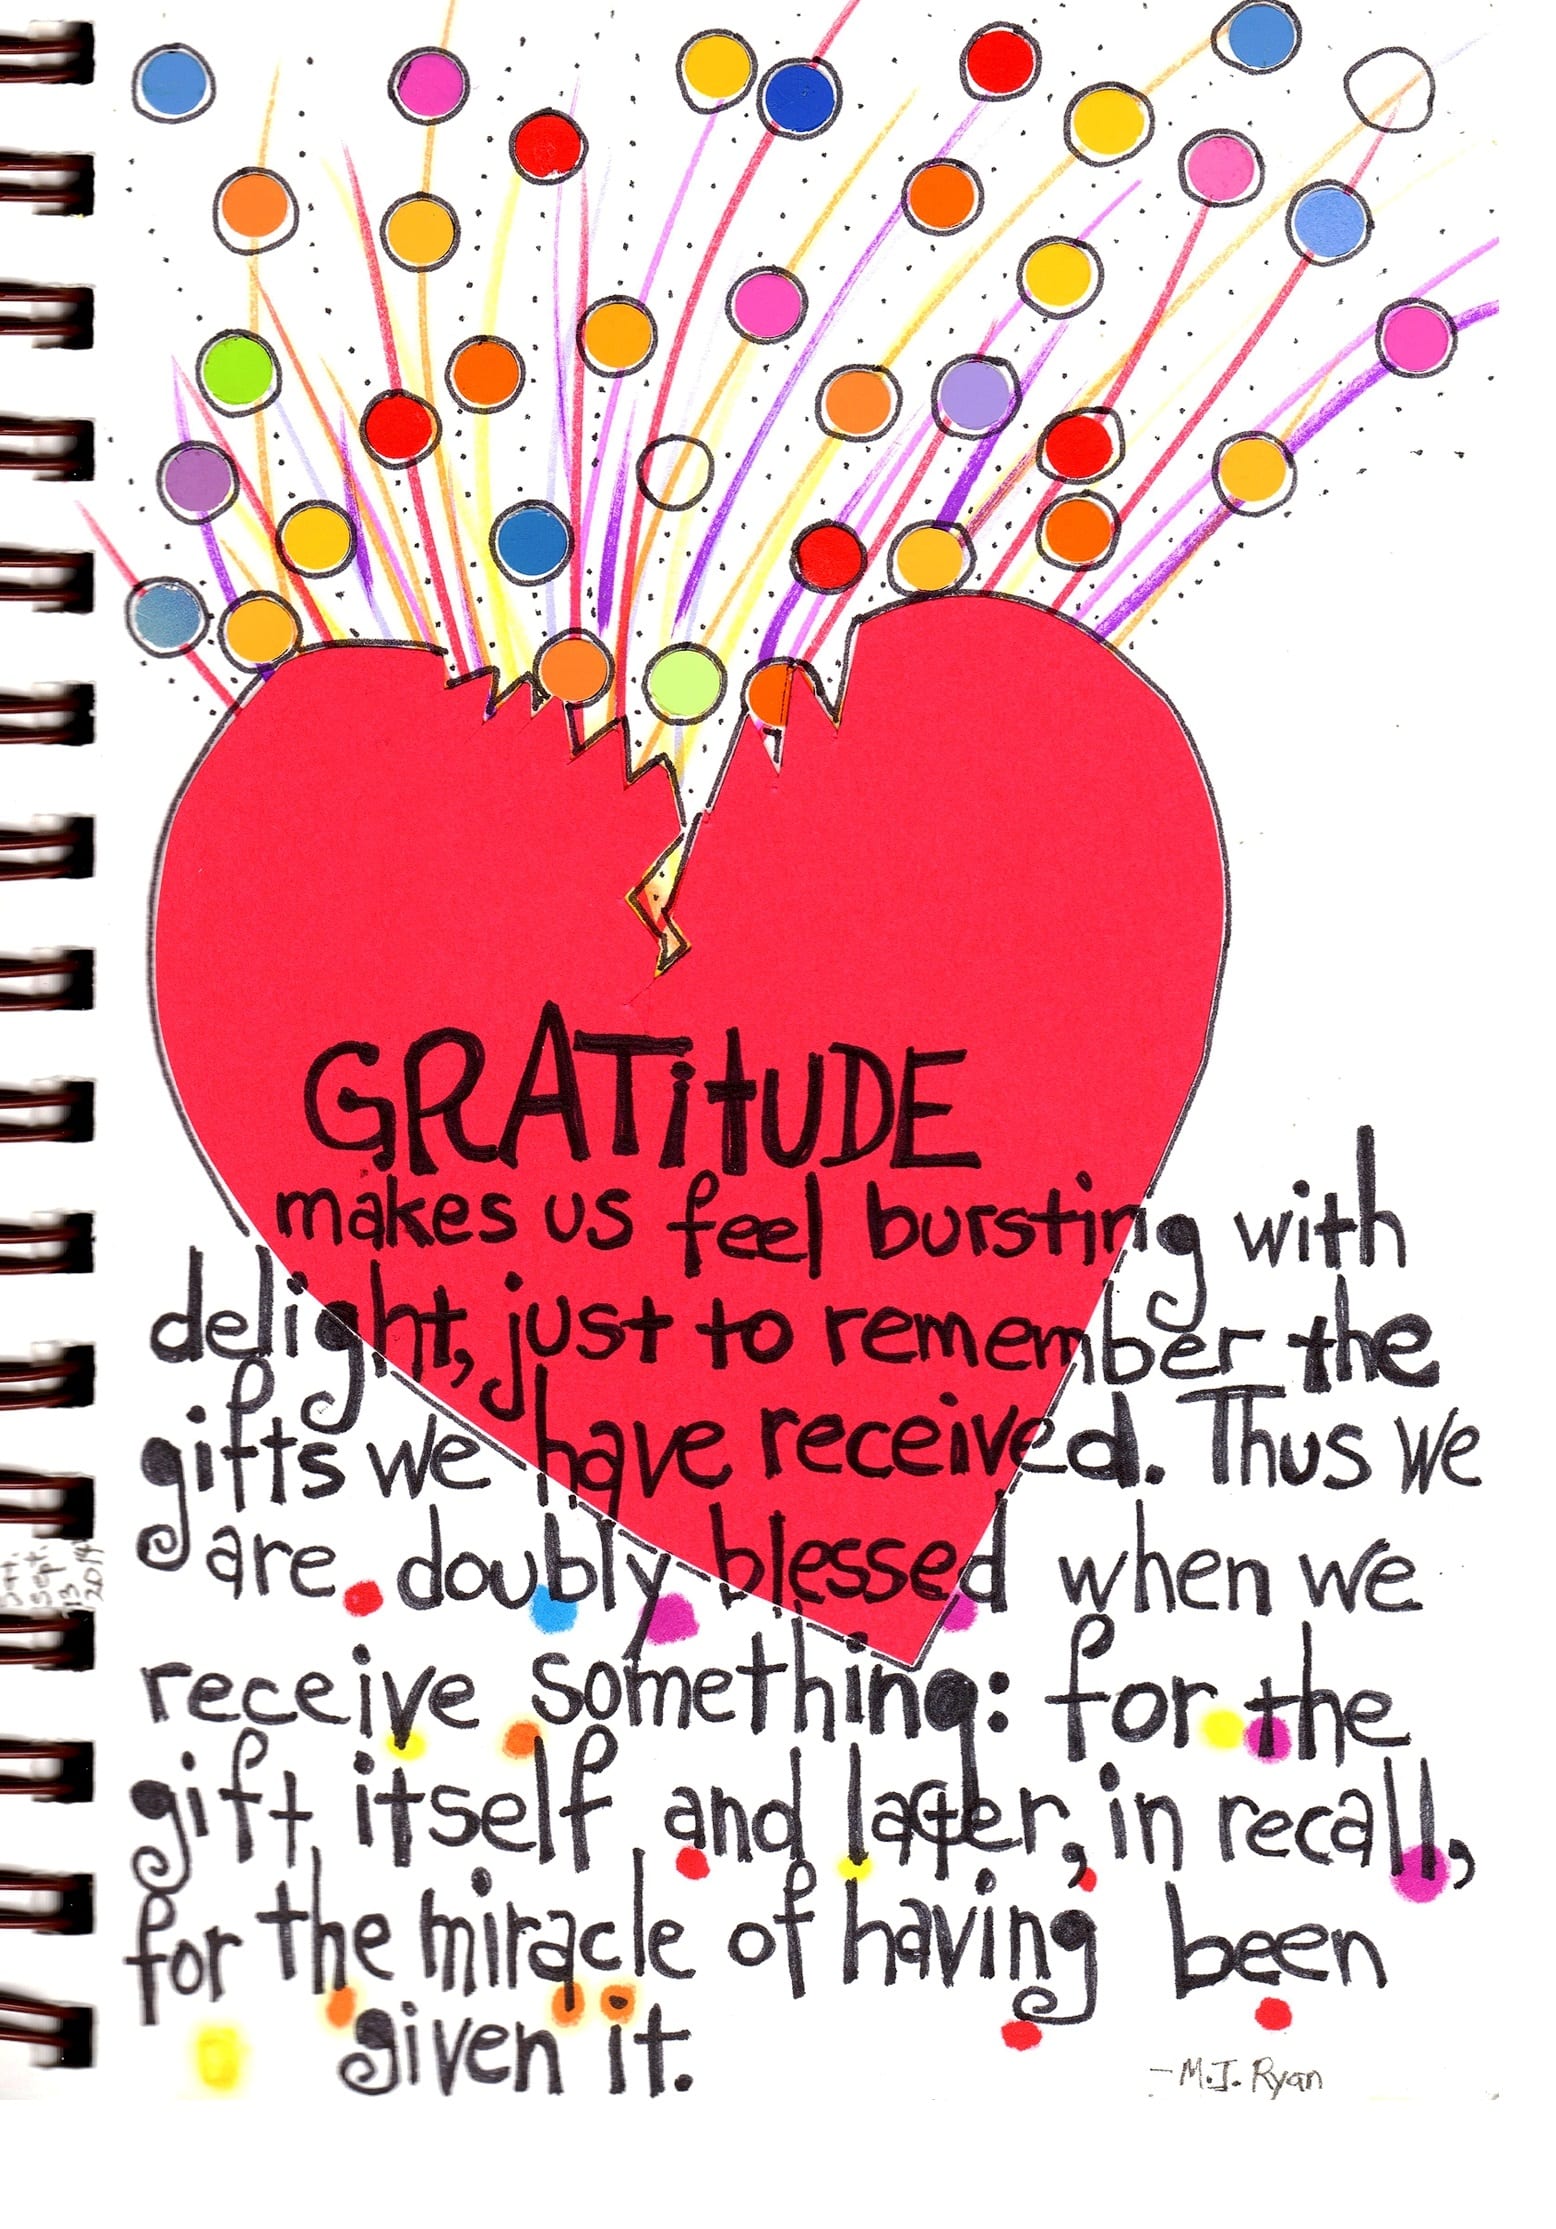 GRATitUDE
makes us feel bursting with
delight, just to remember the
gifts we have received. Thus we
are doubly blessed when we
receive something: for the
gift itself and later, in recall,
for the miracle of having been
given it.
-M.J. Ryan
Sat.
Sept.
13
2014